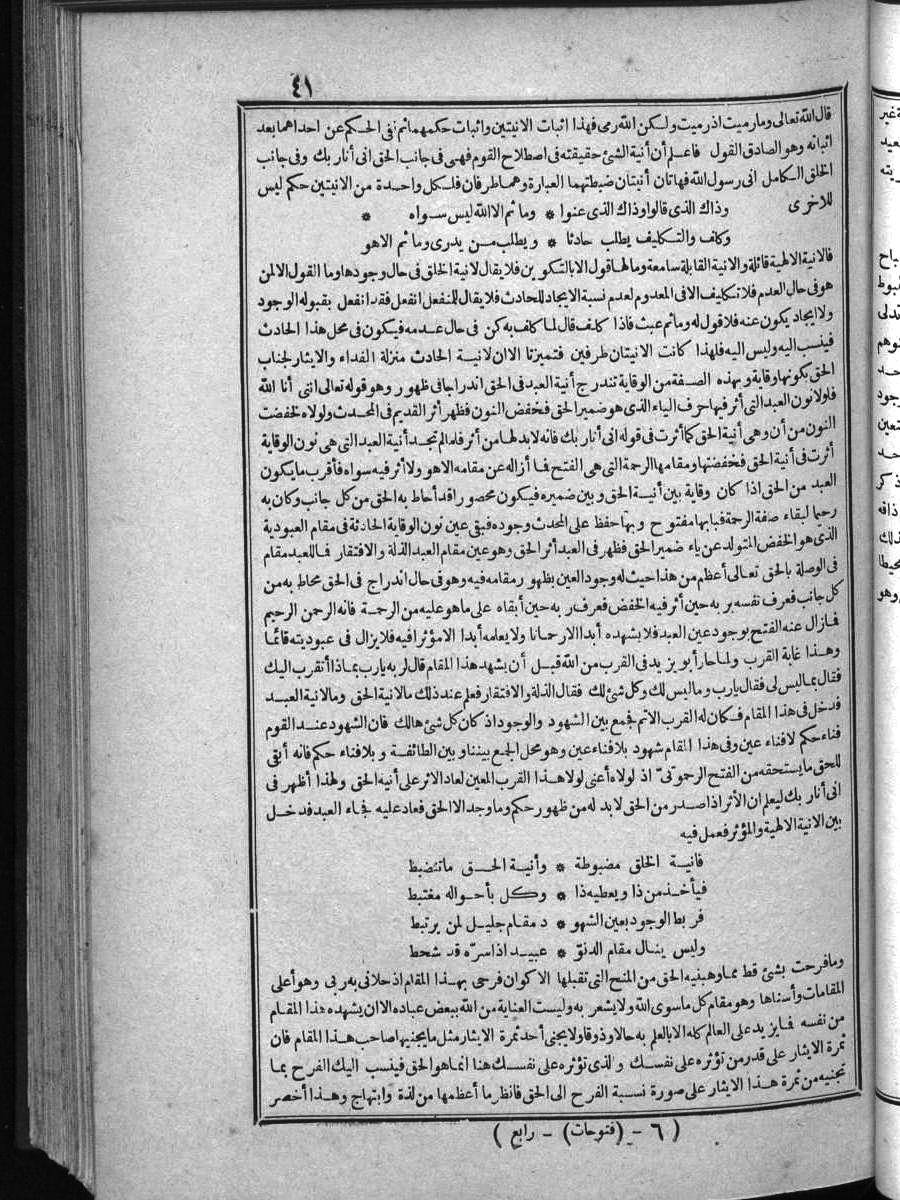 ٤١
قال الله تعالى وما رميت اذ رميت ولكن الله رمى فهذا اثبات الانيتين واثبات حكمهما ثم نفى الحكم عن احداهما بعد
اثباته وهو الصادق القول فاعلم أن أنية الشئ حقيقته فى اصطلاح القوم فهى فى جانب الحق انى أنا ربك وفى جانب
الخلق الكامل انى رسول الله فهاتان أنيتان ضبطتهما العبارة وهما طرفان فلكل واحدة من الانيتين حكم ليس
للاخرى
وذاك الذى قالوا وذاك الذى عنوا * وما ثم الا الله ليس سواه *
وكلف والتكليف يطلب حادثا * ويطلب من يدرى وما ثم الا هو
فالانية الالهية قائلة والانية القابلة سامعة وما لها قول الا بالتكوين فلا يقال لانية الخلق فى حال وجودها وما القول الا لمن
هو فى حال العدم فلا تكليف الا فى المعدوم لعدم نسبة الايجاد للحادث فلا يقال للمنفعل انفعل فقد انفعل بقبوله الوجود
ولا ايجاد يكون عنه فلا قول له وما ثم عبث فاذا كلف قال لما كلف به كن فى حال عدمه فيكون فى محل هذا الحادث
فينسب اليه وليس اليه فلهذا كانت الانيتان طرفين فتميزتا الا ان لانية الحادث منزلة الفداء والايثار لجناب
الحق بكونها وقاية وبهذه الصفة من الوقاية تندرج أنية العبد فى الحق اندراجا فى ظهور وهو قوله تعالى اننى أنا الله
فلولا نون العبد التى أثر فيها حرف الياء الذى هو ضمير الحق فخفض النون فظهر أثر القديم فى المحدث ولولاه لخفضت
النون من أن وهى أنية الحق كما أثرت فى قوله انى أنا ربك فانه لا بد لها من أثر فلما لم تجد أنية العبد التى هى نون الوقاية
أثرت فى أنية الحق فخفضتها ومقامها الرحمة التى هى الفتح فما أزاله عن مقامه الا هو ولا أثر فيه سواه فأقرب ما يكون
العبد من الحق اذا كان وقاية بين أنية الحق وبين ضميره فيكون محصورا قد أحاط به الحق من كل جانب وكان به
رحيما لبقاء صفة الرحمة فبابها مفتوح وبها حفظ على المحدث وجوده فبقى عين نون الوقاية الحادثة فى مقام العبودية
الذى هو الخفض المتولد عن ياء ضمير الحق فظهر فى العبد أثر الحق وهو عين مقام العبد الذلة والافتقار فما للعبد مقام
فى الوصلة بالحق تعالى أعظم من هذا حيث له وجود العين بظهور مقامه فيه وهو فى حال اندراج فى الحق محاط به من
كل جانب فعرف نفسه بربه حين أثر فيه الخفض فعرف ربه حين أبقاه على ما هو عليه من الرحمة فانه الرحمن الرحيم
فما زال عنه الفتح بوجود عين العبد فلا يشهده أبدا الا رحمانا ولا يعلمه أبدا الا مؤثرا فيه فلا يزال فى عبوديته قائما
وهذا غاية القرب ولما حار أبو يزيد فى القرب من الله قبل أن يشهد هذا المقام قال لربه يا رب بماذا أتقرب اليك
فقال بما ليس لى فقال يا رب وما ليس لك وكل شئ لك فقال الذلة والافتقار فعلم عند ذلك ما لانية الحق وما لانية العبد
فدخل فى هذا المقام فكان له القرب الاتم فجمع بين الشهود والوجود اذ كان كل شئ هالك فان الشهود عند القوم
فناء حكم لا فناء عين وفى هذا المقام شهود بلا فناء عين وهو محل الجمع بيننا وبين الطائفة وبلا فناء حكم فانه أبقى
للحق ما يستحقه من الفتح الرحموتى اذ لولاه أعنى لولا هذا القرب المعين لعاد الاثر على أنية الحق ولهذا أظهر فى
انى أنا ربك ليعلم ان الأثر اذا صدر من الحق لا بد له من ظهور حكم وما وجد الا الحق فعاد عليه فجاء العبد فدخل
بين الانية الالهية والمؤثر فعمل فيه
فانية الخلق مضبوطة * وأنية الحق ما تنضبط
فيأخذ من ذا ويعطيه ذا * وكل بأحواله مغتبط
فربط الوجود بعين الشهو * د مقام جليل لمن يرتبط
وليس ينال مقام الدنوّ * عبيد اذا سرّه قد شحط
وما فرحت بشئ قط مما وهبنيه الحق من المنح التى تقبلها الاكوان فرحى بهذا المقام اذ حلانى به ربى وهو أعلى
المقامات وأسناها وهو مقام كل ما سوى الله ولا يشعر به وليست العناية من الله ببعض عباده الا ان يشهده هذا المقام
من نفسه فما يزيد على العالم كله الا بالعلم به حالا وذوقا ولا يجنى أحد ثمرة الايثار مثل ما يجنيها صاحب هذا المقام فان
ثمرة الايثار على قدر من تؤثره على نفسك والذى تؤثره على نفسك هنا انما هو الحق فينسب اليك الفرح بما
تجنيه من ثمرة هذا الايثار على صورة نسبة الفرح الى الحق فانظر ما أعظمها من لذة وابتهاج وهذا أخصر
( ٦ - (فتوحات) - رابع )